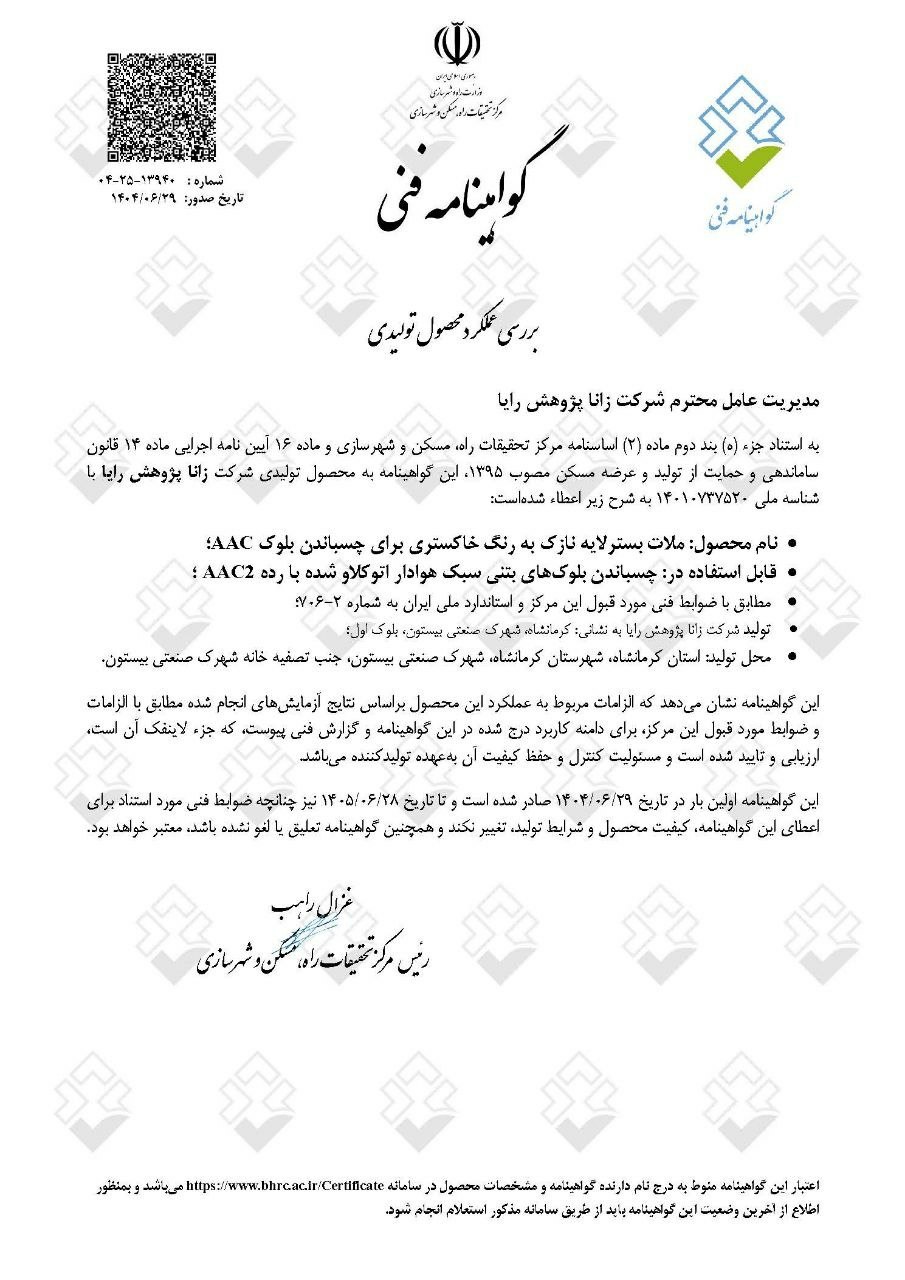 جمهوری اسلامی ایران
وزارت راه و شهرسازی
مرکز تحقیقات راه، مسکن و شهرسازی
گواهینامه فنی
شماره : ۰۴-۲۵-۱۳۹۴۰
تاریخ صدور: ۱۴۰۴/۰۶/۲۹
گواهینامه فنی
بررسی عملکرد محصول تولیدی
مدیریت عامل محترم شرکت زانا پژوهش رایا
به استناد جزء (ه) بند دوم ماده (۲) اساسنامه مرکز تحقیقات راه، مسکن و شهرسازی و ماده ۱۶ آیین نامه اجرایی ماده ۱۴ قانون
ساماندهی و حمایت از تولید و عرضه مسکن مصوب ۱۳۹۵، این گواهینامه به محصول تولیدی شرکت زانا پژوهش رایا با
شناسه ملی ۱۴۰۱۰۷۳۷۵۲۰ به شرح زیر اعطاء شده‌است:
• نام محصول: ملات بسترلایه نازک به رنگ خاکستری برای چسباندن بلوک AAC؛
• قابل استفاده در: چسباندن بلوک‌های بتنی سبک هوادار اتوکلاو شده با رده AAC2 ؛
• مطابق با ضوابط فنی مورد قبول این مرکز و استاندارد ملی ایران به شماره ۲-۷۰۶؛
• تولید شرکت زانا پژوهش رایا به نشانی: کرمانشاه، شهرک صنعتی بیستون، بلوک اول؛
• محل تولید: استان کرمانشاه، شهرستان کرمانشاه، شهرک صنعتی بیستون، جنب تصفیه خانه شهرک صنعتی بیستون.
این گواهینامه نشان می‌دهد که الزامات مربوط به عملکرد این محصول براساس نتایج آزمایش‌های انجام شده مطابق با الزامات
و ضوابط مورد قبول این مرکز، برای دامنه کاربرد درج شده در این گواهینامه و گزارش فنی پیوست، که جزء لاینفک آن است،
ارزیابی و تایید شده است و مسئولیت کنترل و حفظ کیفیت آن به‌عهده تولیدکننده می‌باشد.
این گواهینامه اولین بار در تاریخ ۱۴۰۴/۰۶/۲۹ صادر شده است و تا تاریخ ۱۴۰۵/۰۶/۲۸ نیز چنانچه ضوابط فنی مورد استناد برای
اعطای این گواهینامه، کیفیت محصول و شرایط تولید، تغییر نکند و همچنین گواهینامه تعلیق یا لغو نشده باشد، معتبر خواهد بود.
غزال راهب
رئیس مرکز تحقیقات راه، مسکن و شهرسازی
اعتبار این گواهینامه منوط به درج نام دارنده گواهینامه و مشخصات محصول در سامانه https://www.bhrc.ac.ir/Certificate می‌باشد و بمنظور
اطلاع از آخرین وضعیت این گواهینامه باید از طریق سامانه مذکور استعلام انجام شود.